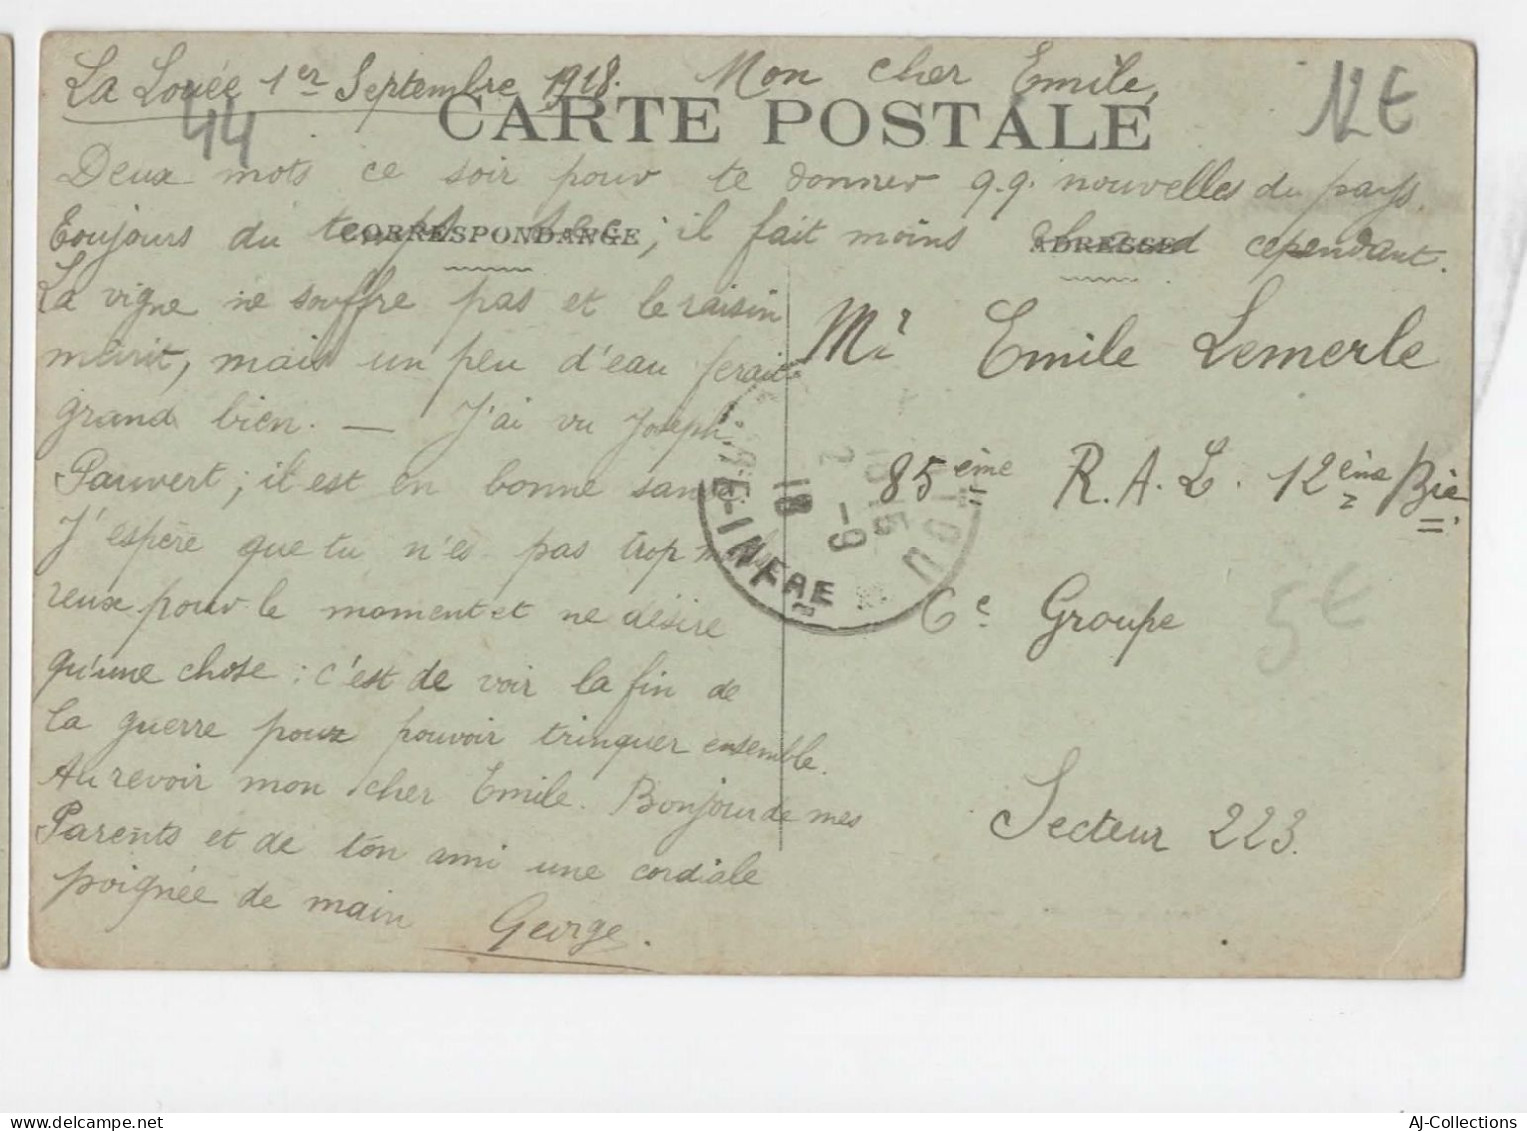 La Louée 1er Septembre 1918. Mon cher Emile,
44
CARTE POSTALE
12 €
Deux mots ce soir pour te donner q.q. nouvelles du pays.
Toujours du temps sec ; il fait moins chaud cependant.
CORRESPONDANCE
ADRESSE
La vigne ne souffre pas et le raisin
mûrit, mais un peu d'eau ferait
grand bien. — J'ai vu Joseph
Pauvert ; il est en bonne santé.
J'espère que tu n'es pas trop malheu
reux pour le moment et ne désire
qu'une chose : c'est de voir la fin de
la guerre pour pouvoir trinquer ensemble.
Au revoir mon cher Emile. Bonjour de mes
Parents et de ton ami une cordiale
poignée de main
George.
Mr Emile Lemerle
85ème R.A.L. 12ème Bie
6e Groupe
5€
Secteur 223.
15 15
2 -9
18
RE-INFRE
AJ-Collections